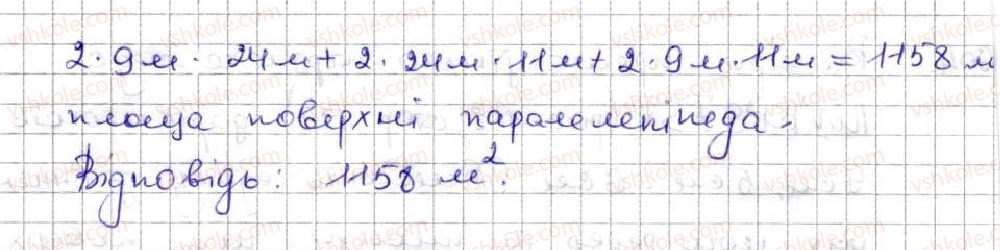 2·9м· 24м+2·24м·11м+2·9м·11м=1158 м
площа поверхні паралелепіпеда.
Відповідь: 1158 м².